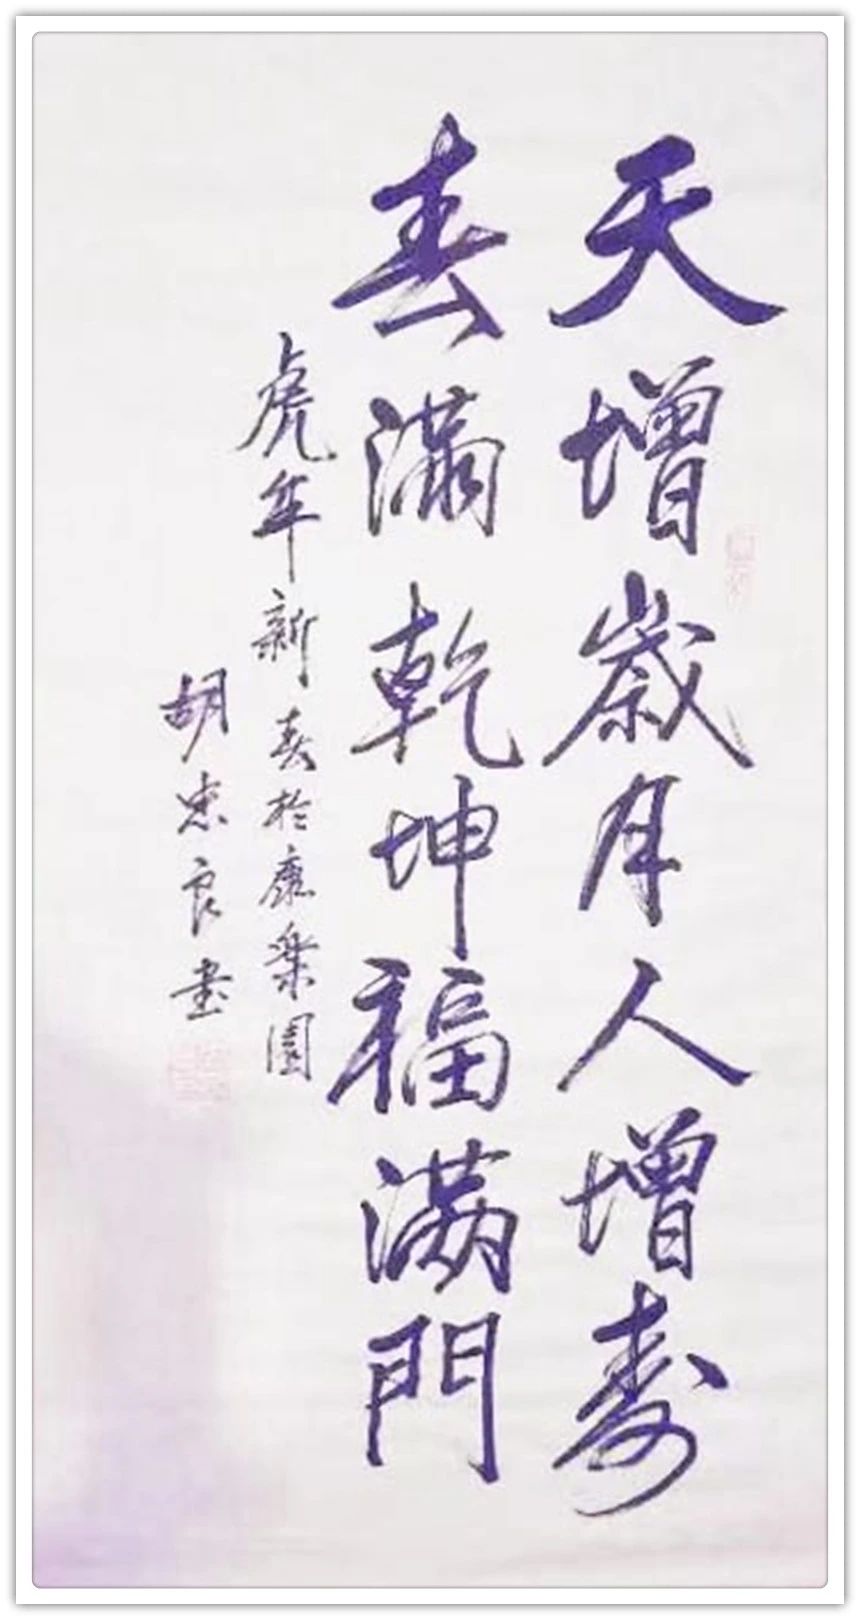 天增歲月人增寿
春滿乾坤福满門
虎年新春於康樂園
胡忠良書